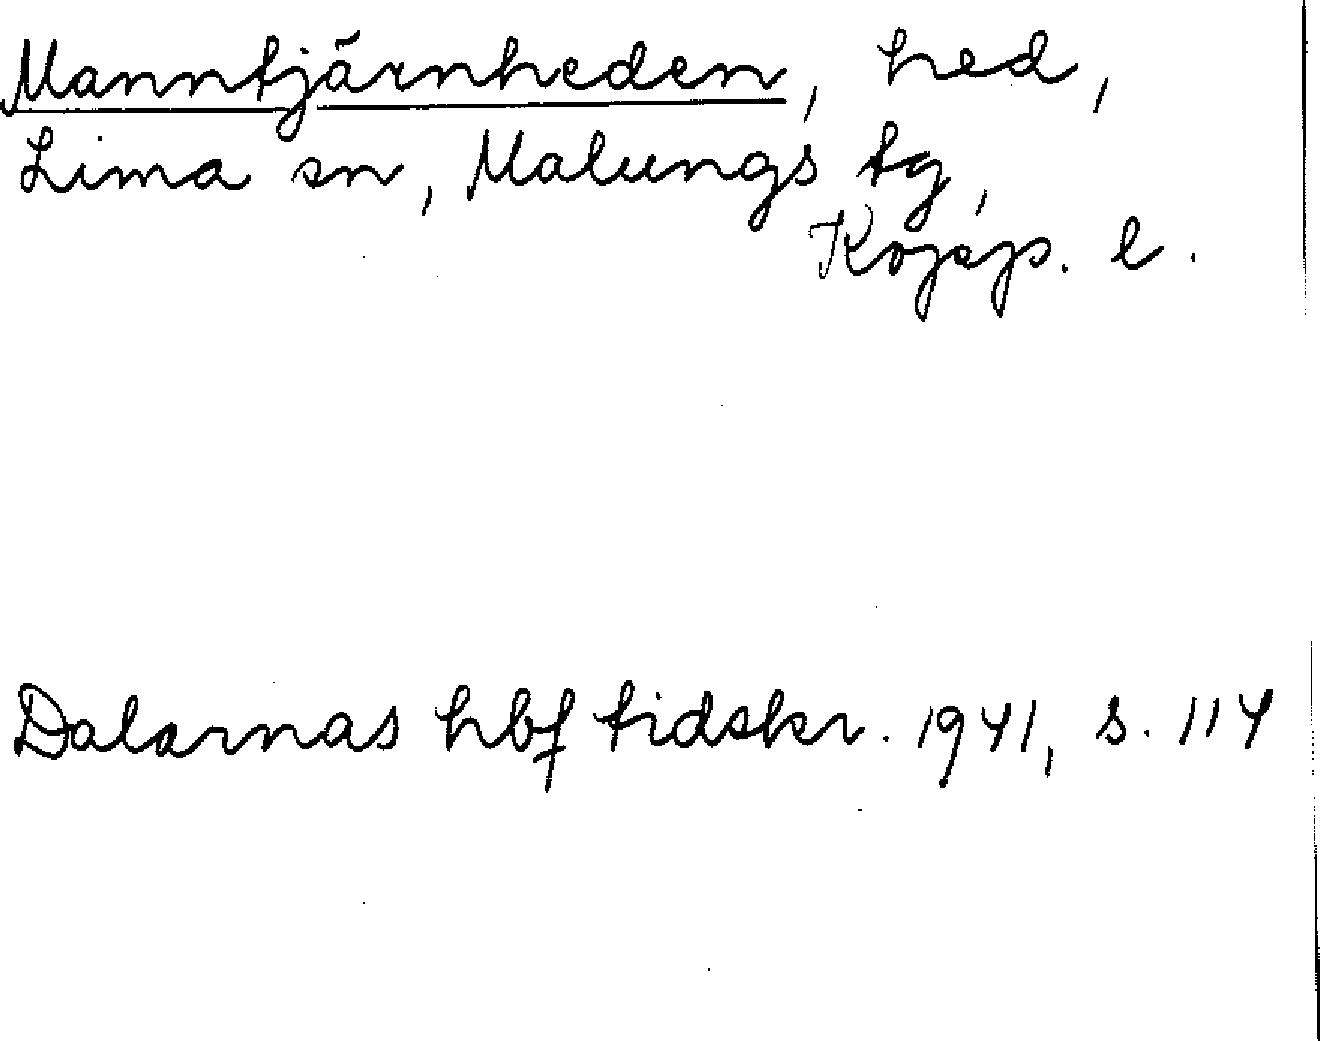 Manntjärnheden, hed,
Lima sn, Malungs tg,
Kopp. l.
Dalarnas hbf tidskr. 1941, s. 114